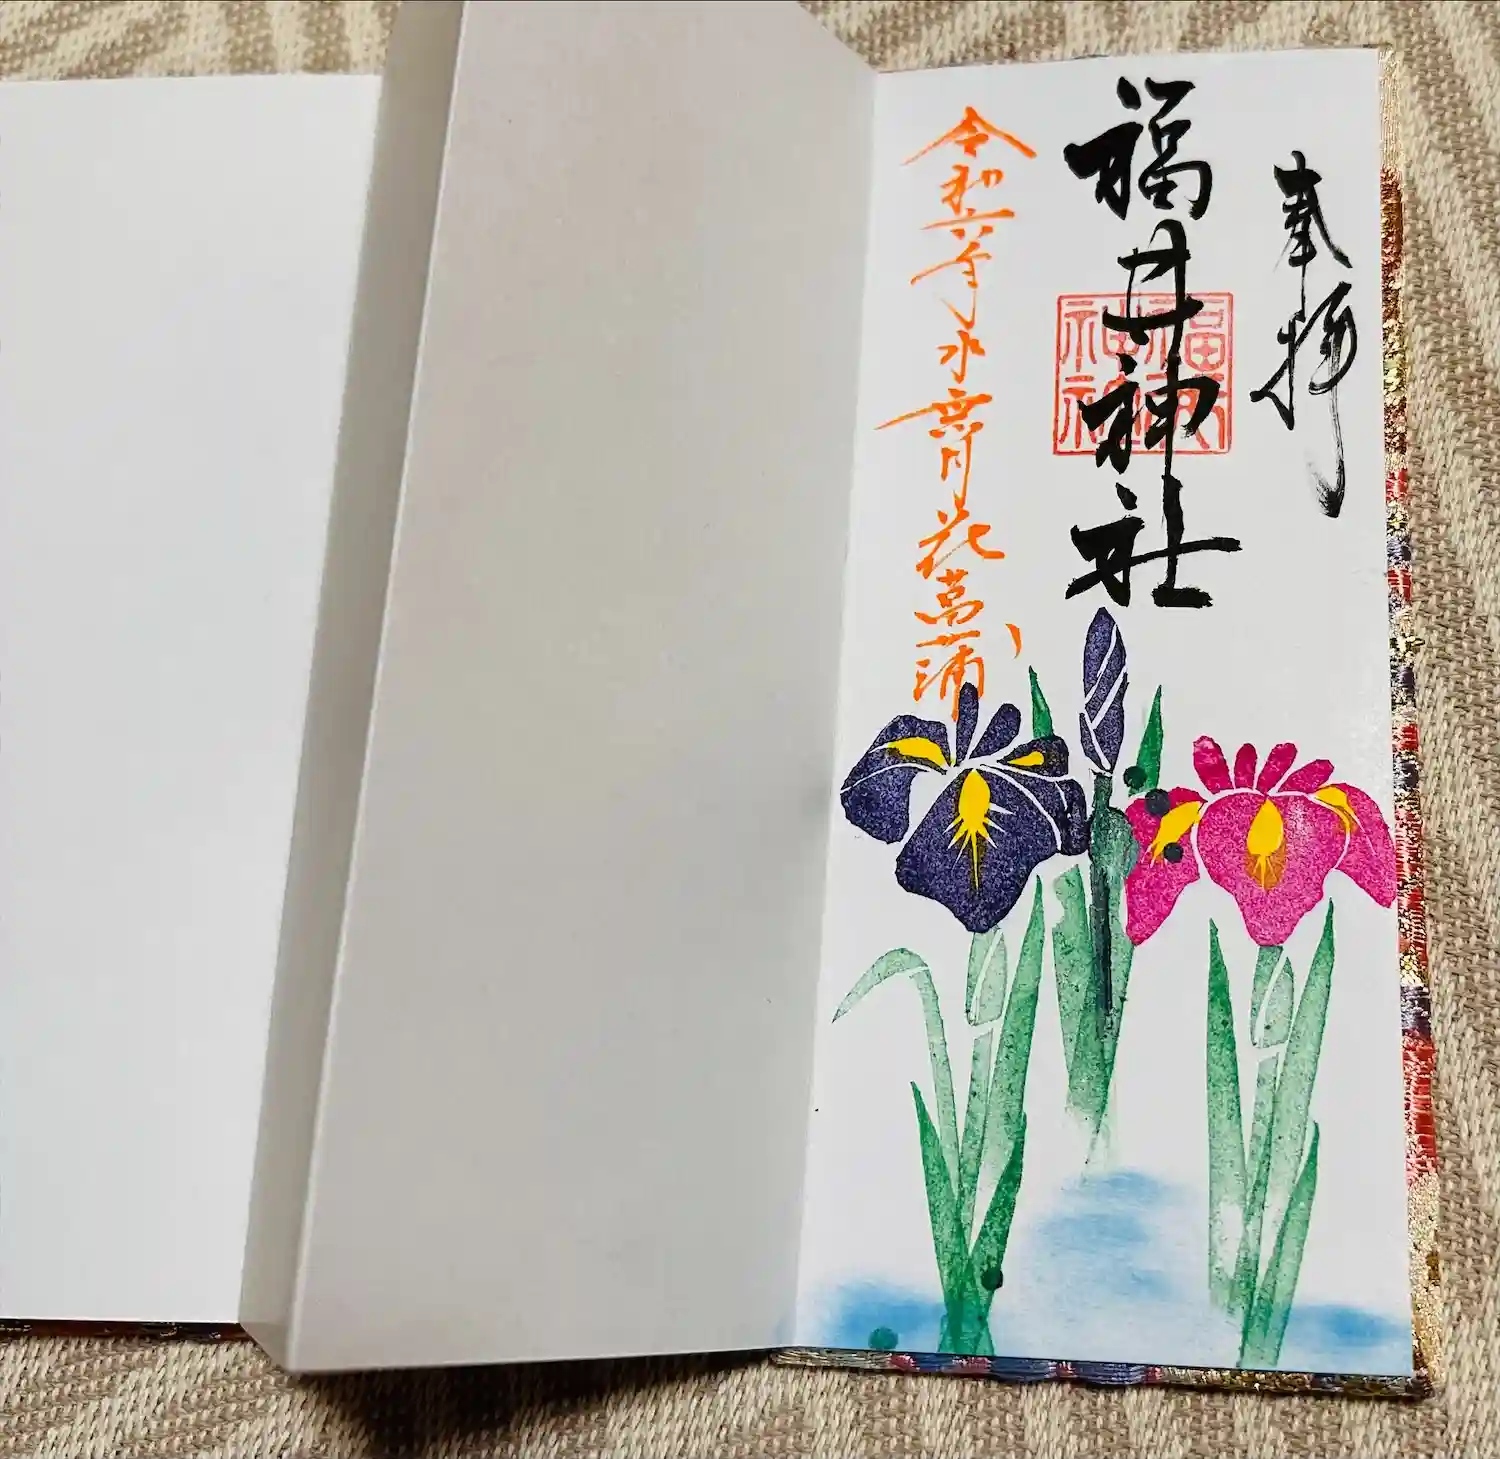 奉拝
福井神社
福井神社
令和六年水無月花菖蒲